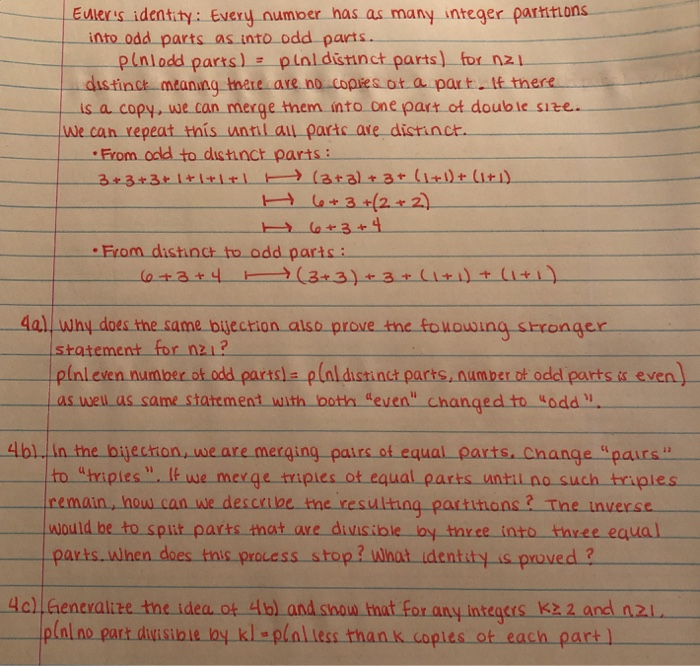 Euler's identity: Every number has as many integer partitions
into odd parts as into odd parts.
p(n|odd parts) = p(n|distinct parts) for n≥1
distinct meaning there are no copies of a part. If there
is a copy, we can merge them into one part of double size.
We can repeat this until all parts are distinct.
• From odd to distinct parts:
3+3+3+1+1+1+1 ↦ (3+3)+3+(1+1)+(1+1)
↦ 6+3+(2+2)
↦ 6+3+4
• From distinct to odd parts:
6+3+4 ↦ (3+3)+3+(1+1)+(1+1)
4a) Why does the same bijection also prove the following stronger
statement for n≥1?
p(n|even number of odd parts) = p(n|distinct parts, number of odd parts is even)
as well as same statement with both "even" changed to "odd".
4b). In the bijection, we are merging pairs of equal parts. Change "pairs"
to "triples". If we merge triples of equal parts until no such triples
remain, how can we describe the resulting partitions? The inverse
would be to split parts that are divisible by three into three equal
parts. When does this process stop? What identity is proved?
4c) Generalize the idea of 4b) and show that for any integers k≥2 and n≥1,
p(n|no part divisible by k) = p(n|less than k copies of each part)